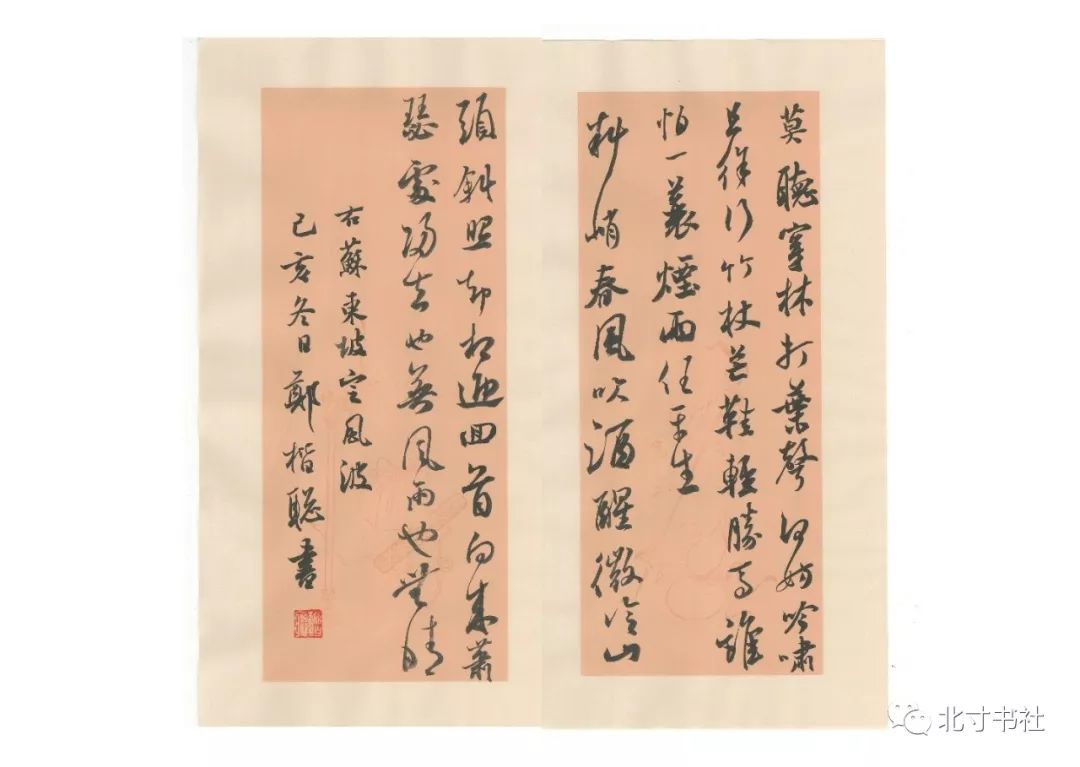 莫聽穿林打葉聲何妨吟嘯
且徐行竹杖芒鞋輕勝馬誰
怕一蓑煙雨任平生
料峭春風吹酒醒微冷山
頭斜照却相迎回首向來蕭
瑟處歸去也無風雨也無晴
右蘇東坡定風波
己亥冬日鄭楷聰書
北寸书社